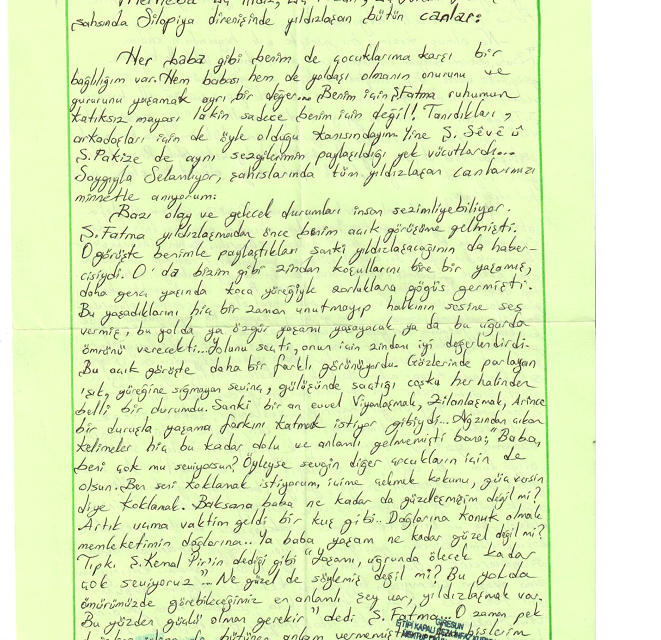 şahsında Silopiya direnişinde yıldızlaşan bütün canlar:
Her baba gibi benim de çocuklarıma karşı bir
bağlılığım var. Hem babası hem de yoldaşı olmanın onurunu ve
gururunu yaşamak ayrı bir değer... Benim için Ş.Fatma ruhumun
katıksız mayası lakin sadece benim için değil! Tanıdıkları,
arkadaşları için de öyle olduğu kanısındayım. Yine Ş. Sêvê û
Ş. Pakize de aynı sezgilerimin paylaşıldığı yek vücutlardı...
Saygıyla Selamlıyor, şahıslarında tüm yıldızlaşan canlarımızı
minnetle anıyorum:
Bazı olay ve gelecek durumları insan sezimliyebiliyor.
Ş. Fatma yıldızlaşmadan önce benim açık görüşüme gelmişti.
O görüşte benimle paylaştıkları sanki yıldızlaşacağının da haber-
cisiydi. O' da bizim gibi zindan koşullarını bire bir yaşamış,
daha genç yaşında koca yüreğiyle zorluklara göğüs germişti.
Bu yaşadıklarını hiç bir zaman unutmayıp halkının sesine ses
vermiş, bu yolda ya özgür yaşamı yaşayacak ya da bu uğurda
ömrünü verecekti... Yolunu seçti, onun için zindanı iyi değerlendirdi.
Bu açık görüşte daha bir farklı görünüyordu. Gözlerinde parlayan
ışık, yüreğine sığmayan sevinç, gülüşünde saçtığı coşku her halinden
belli bir durumdu. Sanki bir an evvel Viyanlaşmak, Zilanlaşmak, Arince
bir duruşla yaşama farkını katmak istiyor gibiydi... Ağzından çıkan
kelimeler hiç bu kadar dolu ve anlamlı gelmemişti bana; "Baba,
beni çok mu seviyosun? Öyleyse sevgin diğer çocukların için de
olsun. Ben seni koklamak istiyorum, içime çekmek kokunu, güç versin
diye koklamak. Baksana baba ne kadar da güzelleşmişim değil mi?
Artık uçma vaktim geldi bir kuş gibi.. Dağlarına konuk olmak
memleketimin dağlarına.. Ya baba yaşam ne kadar güzel değil mi?
Tıpkı Ş. Kemal Pir'in dediği gibi "Yaşamı, uğrunda ölecek kadar
çok seviyoruz"... Ne güzel de söylemiş değil mi? Bu yolda
ömrümüzde görebileceğimiz en anlamlı şey var, yıldızlaşmak var.
Bu yüzden güçlü olman gerekir" dedi Ş. Fatma... O zaman pek
GİRESUN